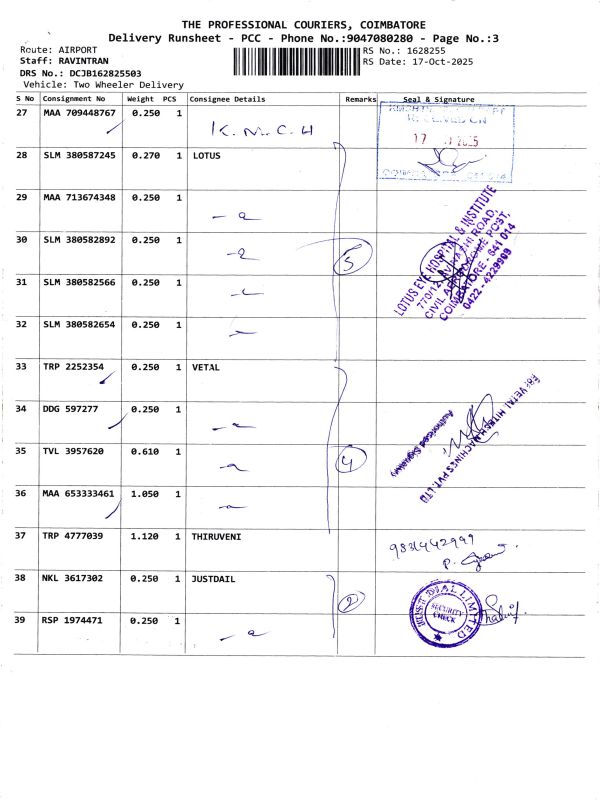 THE PROFESSIONAL COURIERS, COIMBATORE
Delivery Runsheet - PCC - Phone No.:9047080280 - Page No.:3
Route: AIRPORT
RS No.: 1628255
Staff: RAVINTRAN
RS Date: 17-Oct-2025
DRS No.: DCJB162825503
Vehicle: Two Wheeler Delivery
S No Consignment No Weight PCS Consignee Details Remarks Seal & Signature
27 MAA 709448767 0.250 1 K.M.C.H
17 2025
28 SLM 380587245 0.270 1 LOTUS
29 MAA 713674348 0.250 1 - a
30 SLM 380582892 0.250 1 5
LOTUS EYE HOSPITAL & INSTITUTE
770/12, AVINASHI ROAD,
CIVIL AERODROME POST,
COIMBATORE - 641 014
0422 - 4229999
31 SLM 380582566 0.250 1
32 SLM 380582654 0.250 1
33 TRP 2252354 0.250 1 VETAL
34 DDG 597277 0.250 1 - a
For VETAL HITECH MACHINES PVT. LTD
Authorised Signatory
35 TVL 3957620 0.610 1 - a 4
36 MAA 653333461 1.050 1 - a
37 TRP 4777039 1.120 1 THIRUVENI 9831442999
38 NKL 3617302 0.250 1 JUSTDAIL 2
DIAL LIMITED
SECURITY
CHECK
39 RSP 1974471 0.250 1 - a